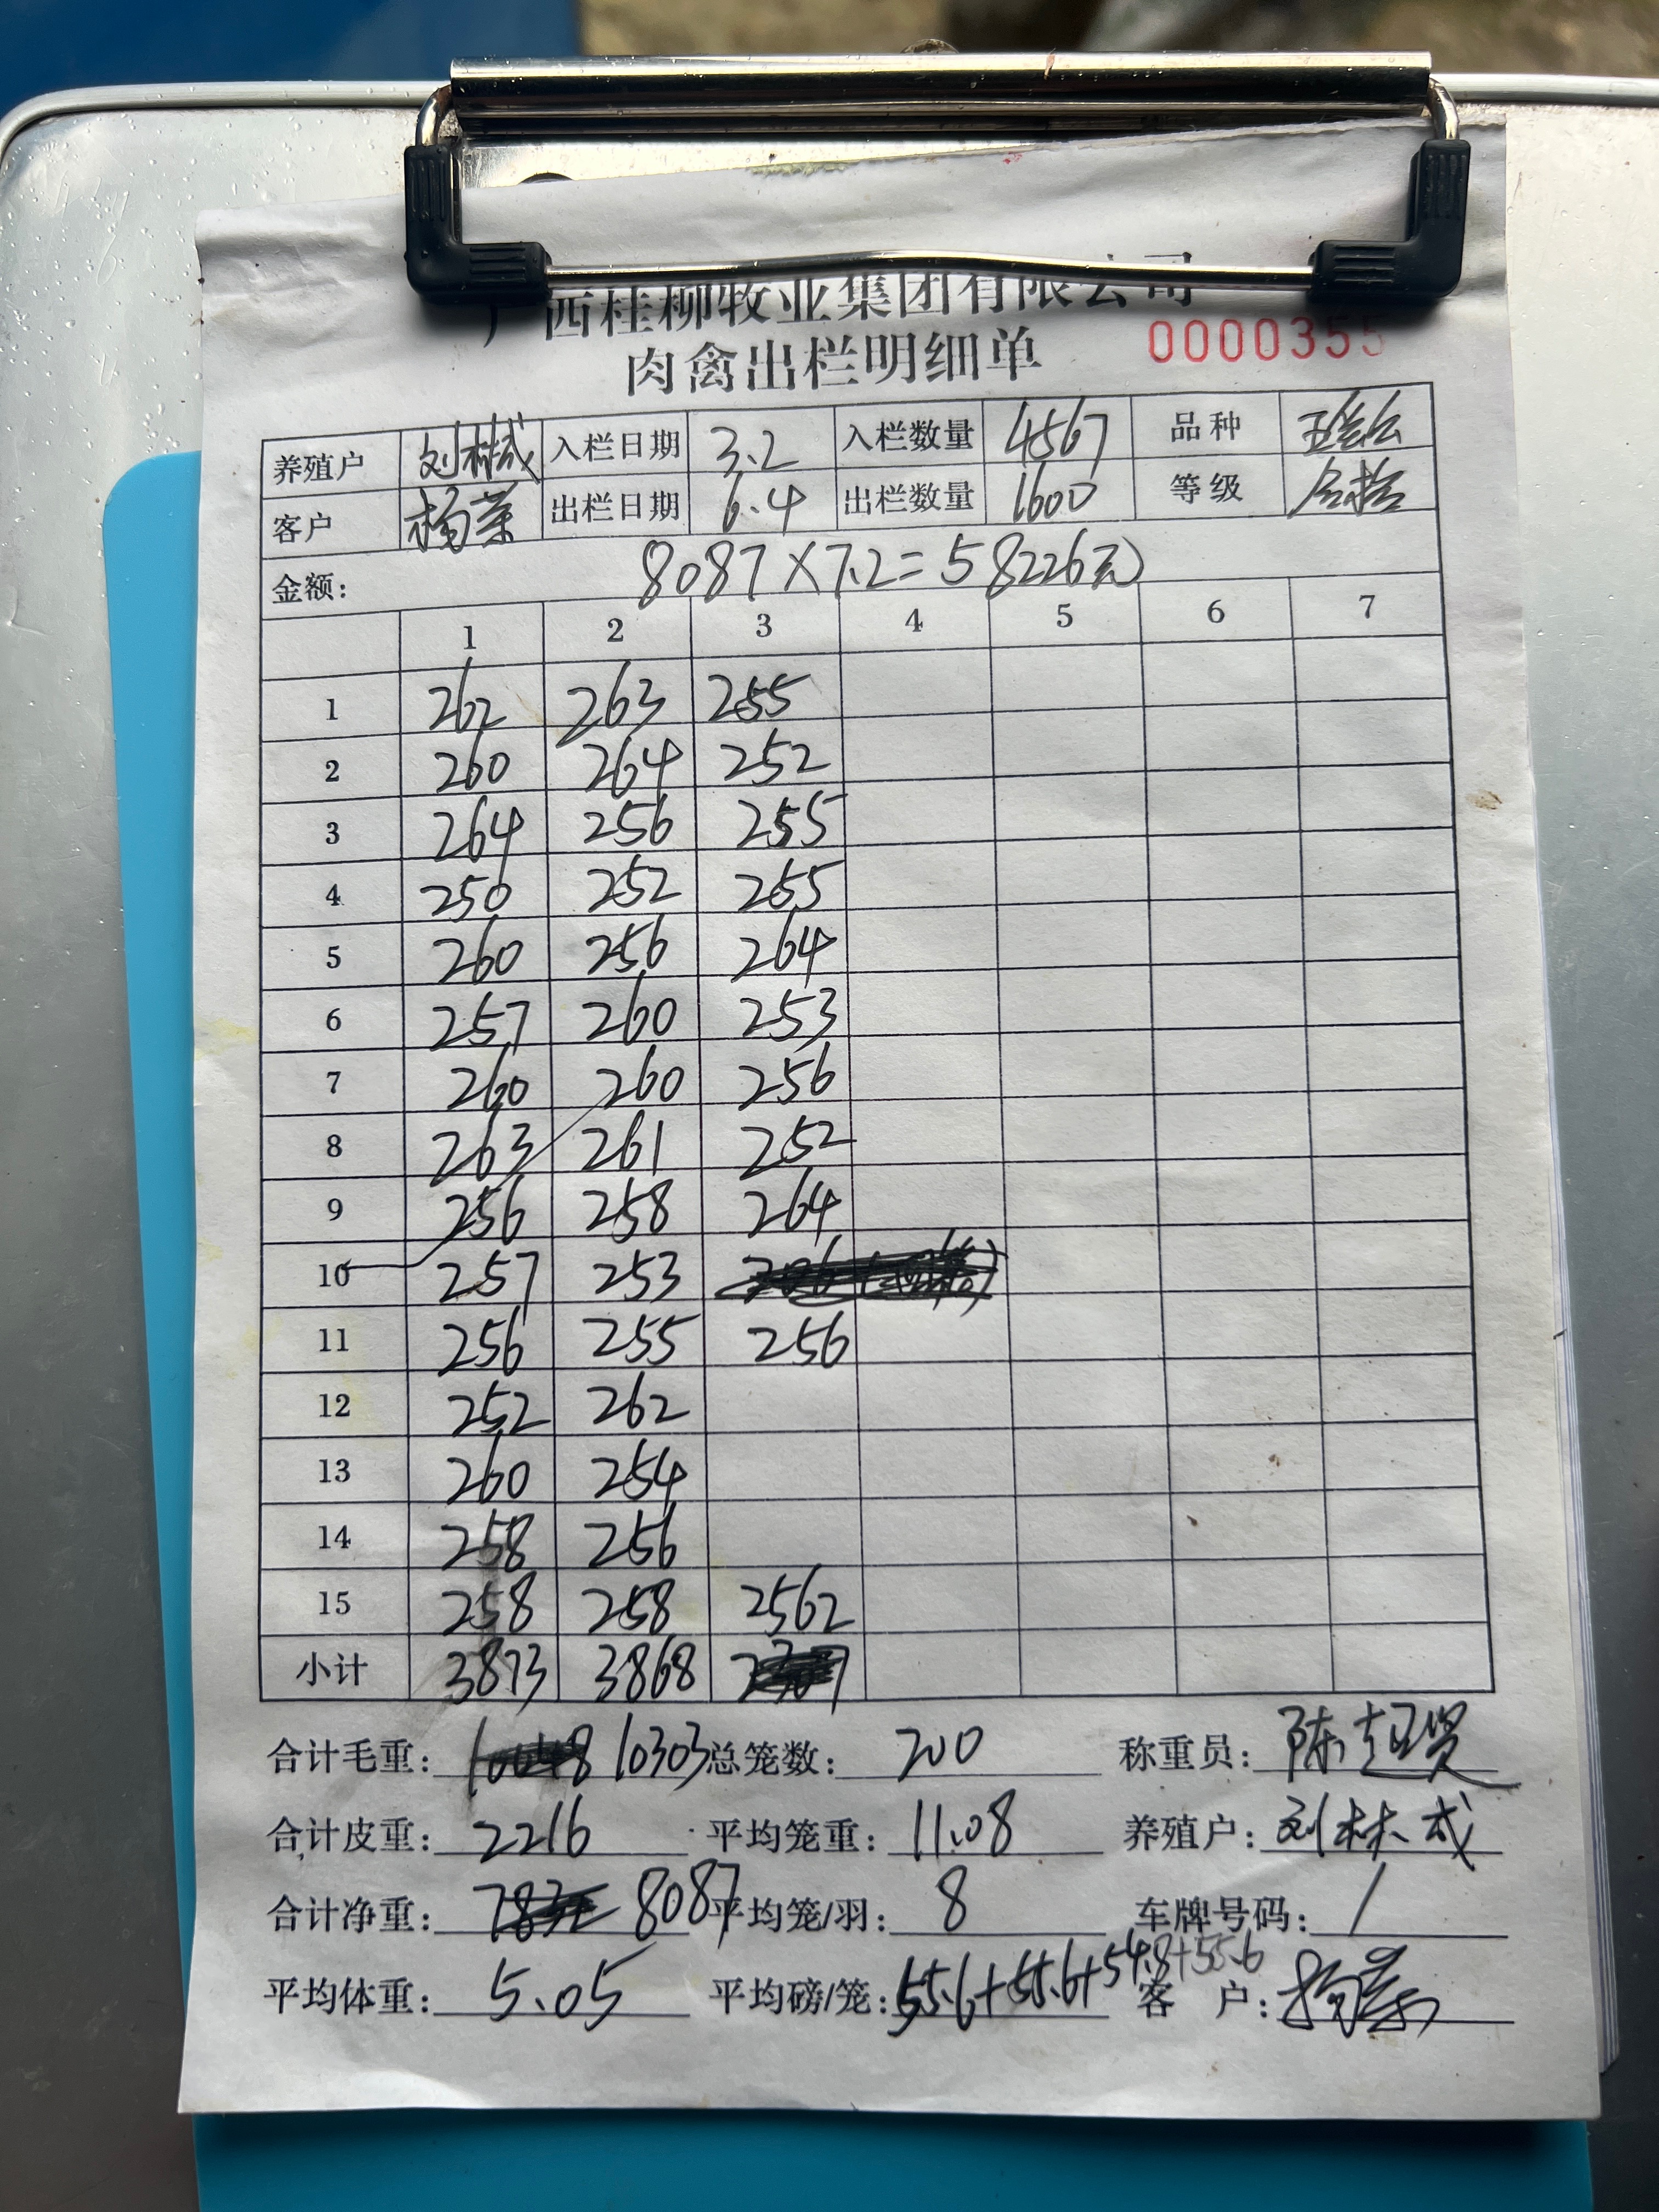 广西桂柳牧业集团有限公司
肉禽出栏明细单 0000355
养殖户 刘林成 入栏日期 3.2 入栏数量 4567 品种
客户 杨菜 出栏日期 6.4 出栏数量 1600 等级 合格
金额: 8087×7.2=58226元
1 2 3 4 5 6 7
1 262 263 255
2 260 264 252
3 264 256 255
4 250 252 255
5 260 256 264
6 257 260 253
7 260 260 256
8 263 261 252
9 256 258 264
10 257 253
11 256 255 256
12 252 262
13 260 254
14 258 256
15 258 258 2562
小计 3873 3868
合计毛重: 10303 总笼数: 200 称重员: 陈超贤
合计皮重: 2216 平均笼重: 11.08 养殖户: 刘林成
合计净重: 8087 平均笼/羽: 8 车牌号码: 1
平均体重: 5.05 平均磅/笼: 55.6+55.6+54.8+55.6 客 户: 杨菜